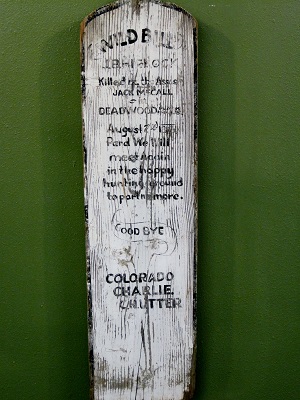 WILD BILL
J.B. HICKOCK
Killed by the Assassin
JACK McCALL
DEADWOOD
August 2nd 1876
Pard We Will
meet again
in the happy
hunting ground
to part no more.
GOOD BYE
COLORADO
CHARLIE.
C.H. UTTER